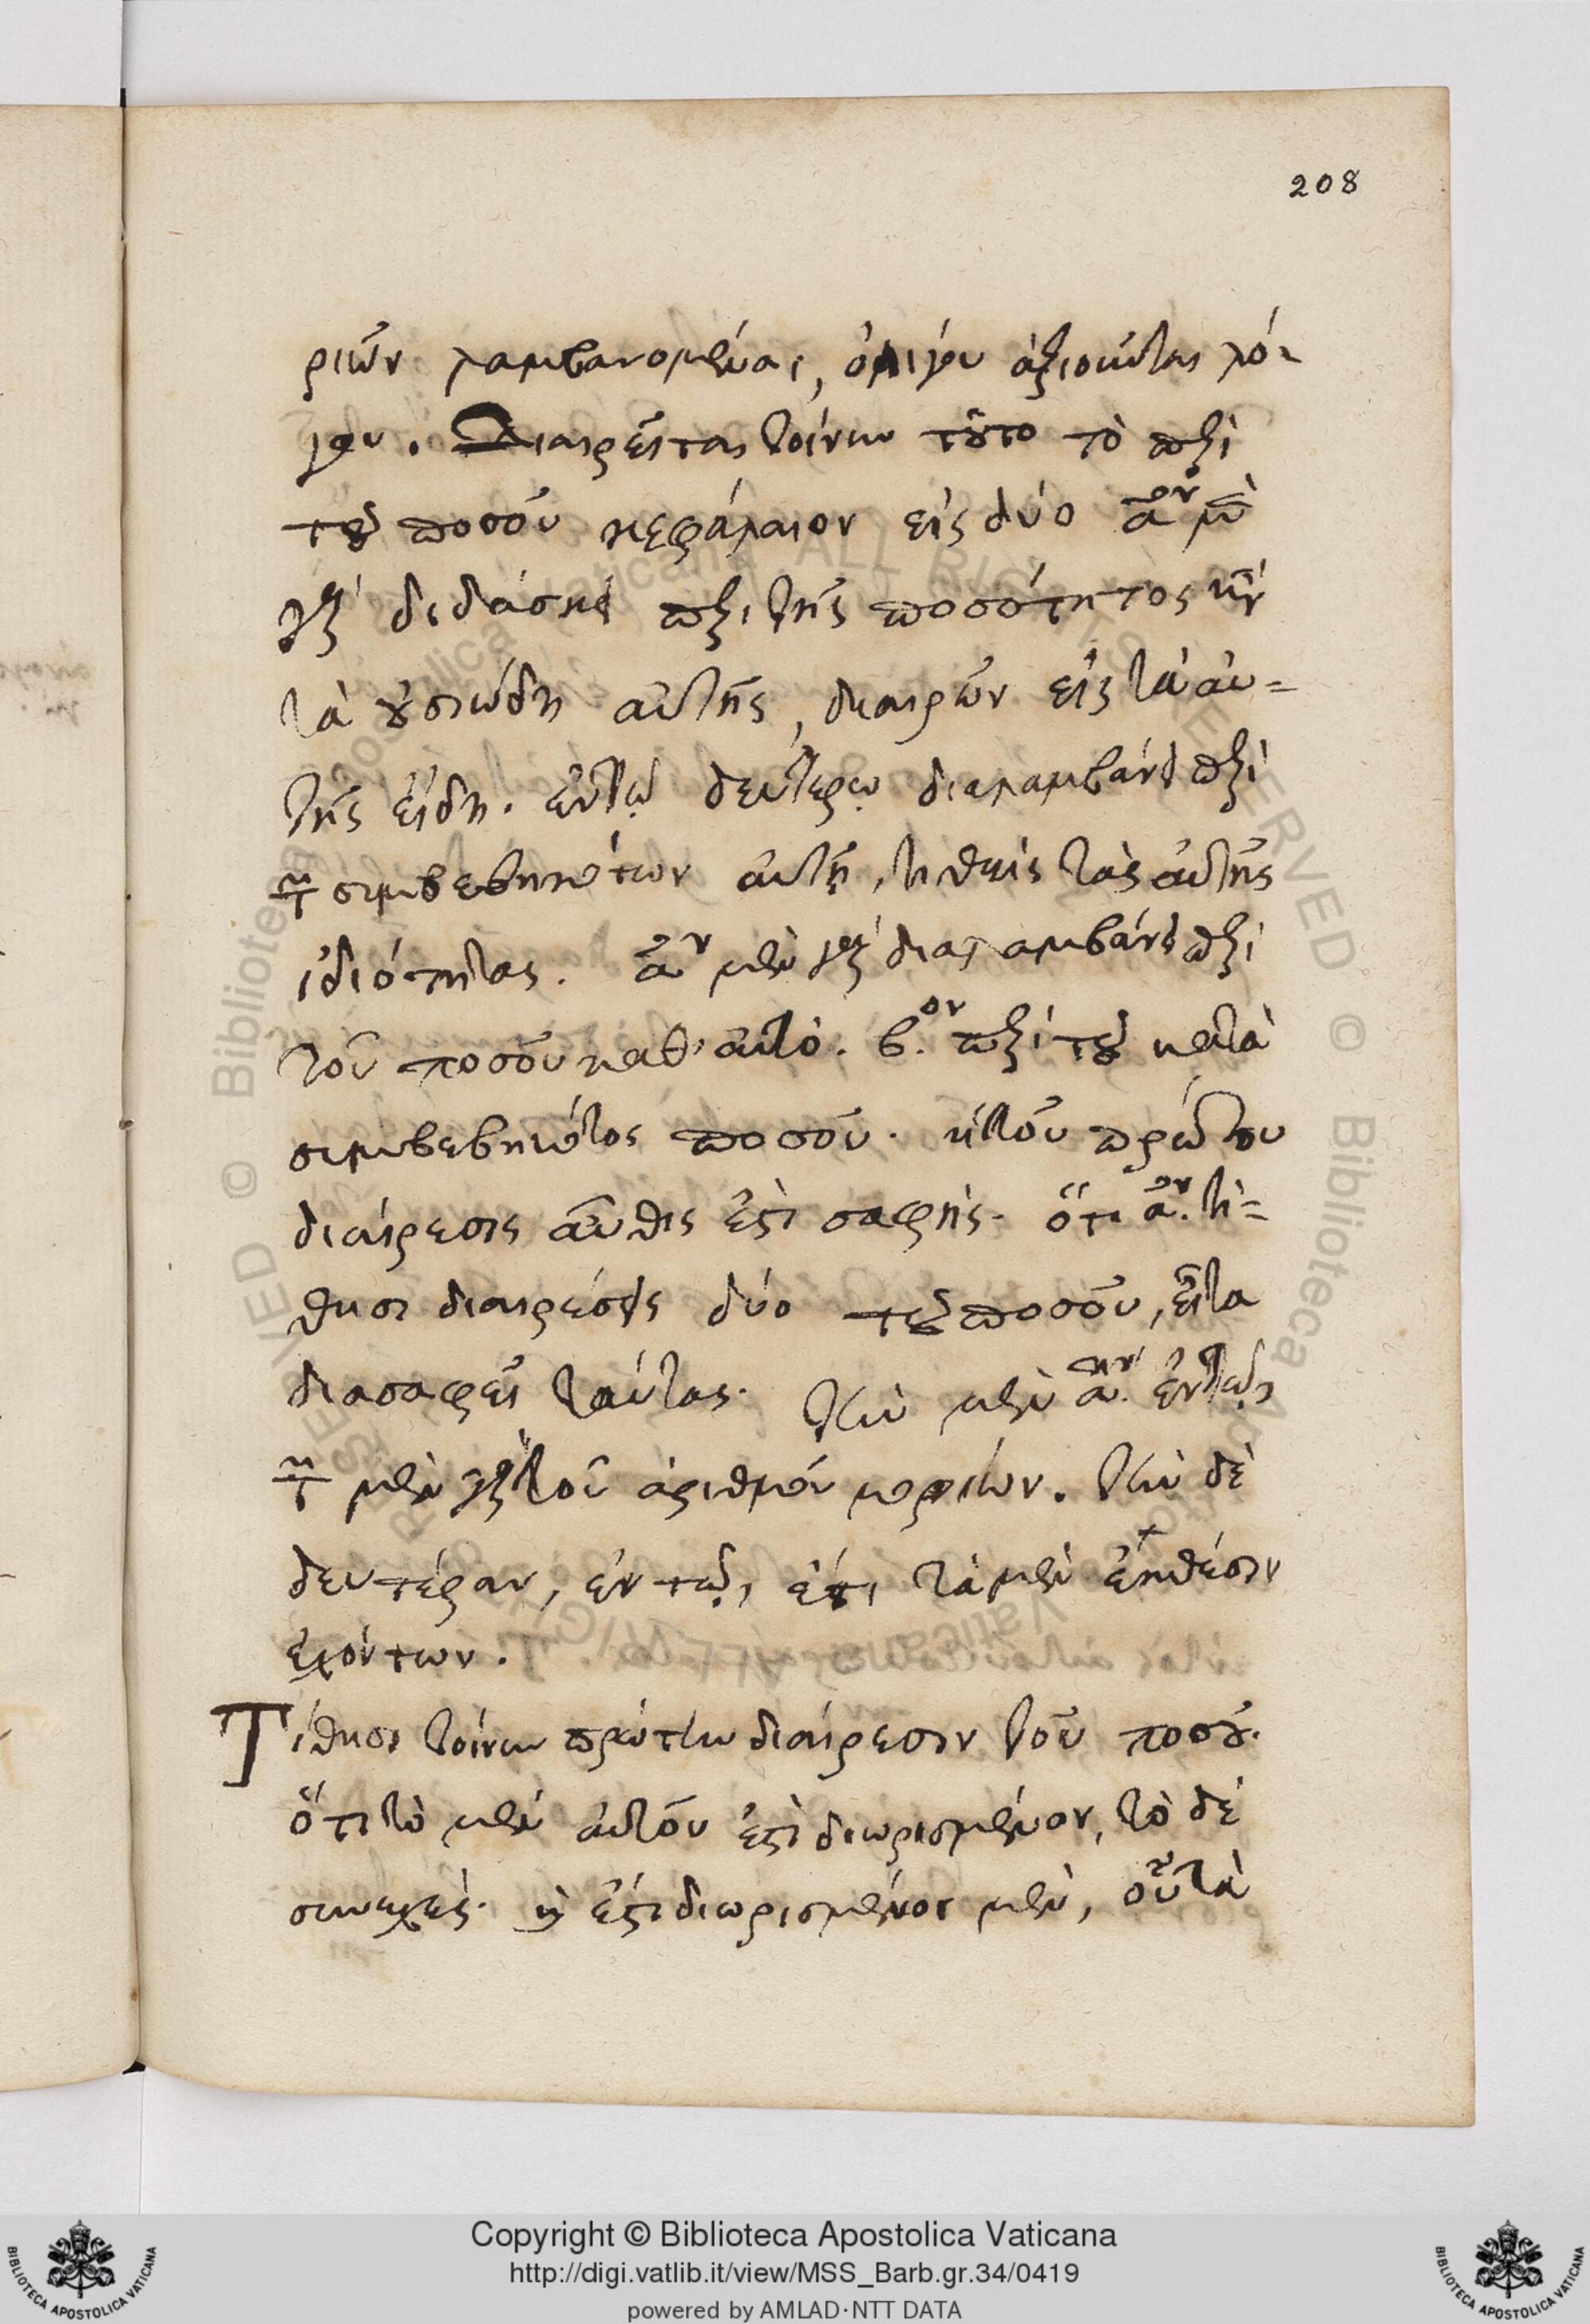 208
ριῶν λαμβανομέναι, ὀλίγου ἀξιοῦνται λό-
γου. Διαιρεῖται τοίνυν τοῦτο τὸ περὶ
τοῦ ποσοῦ κεφάλαιον εἰς δύο α̅ον μὲν
γὰρ διδάσκει περὶ τῆς ποσότητος κατὰ
τὰ οὐσιώδη αὐτῆς, διαιρῶν εἰς τὰ αὐ=
τῆς εἴδη. ἐν τῷ δευτέρῳ διαλαμβάνει περὶ
τῶν συμβεβηκότων αὐτῇ, τιθεὶς τὰς αὐτῆς
ἰδιότητας. α̅ον μὲν γὰρ διαλαμβάνει περὶ
τοῦ ποσοῦ καθ' αὑτό. β.ον περὶ τοῦ κατὰ
συμβεβηκότος ποσοῦ. ἡ τοῦ πρώτου
διαίρεσις αὖθις ἐστὶ σαφής. ὅτι α̅.ον τί=
θησι διαιρέσεις δύο τοῦ ποσοῦ, εἶτα
διασαφεῖ ταύτας. τὴν μὲν α̅.ην ἐν τῷ,
τῶν μὲν γὰρ τοῦ ἀριθμοῦ μορίων. τὴν δὲ
δευτέραν, ἐν τῷ, ἔτι τὰ μὲν ἐκ θέσιν
ἐχόντων.
Τίθησι τοίνυν πρώτην διαίρεσιν τοῦ ποσοῦ.
ὅτι τὸ μὲν αὐτοῦ ἐστὶ διωρισμένον, τὸ δὲ
συνεχές. καὶ ἔστι διωρισμένον μὲν, οὗ τὰ
Copyright © Biblioteca Apostolica Vaticana
http://digi.vatlib.it/view/MSS_Barb.gr.34/0419
powered by AMLAD·NTT DATA